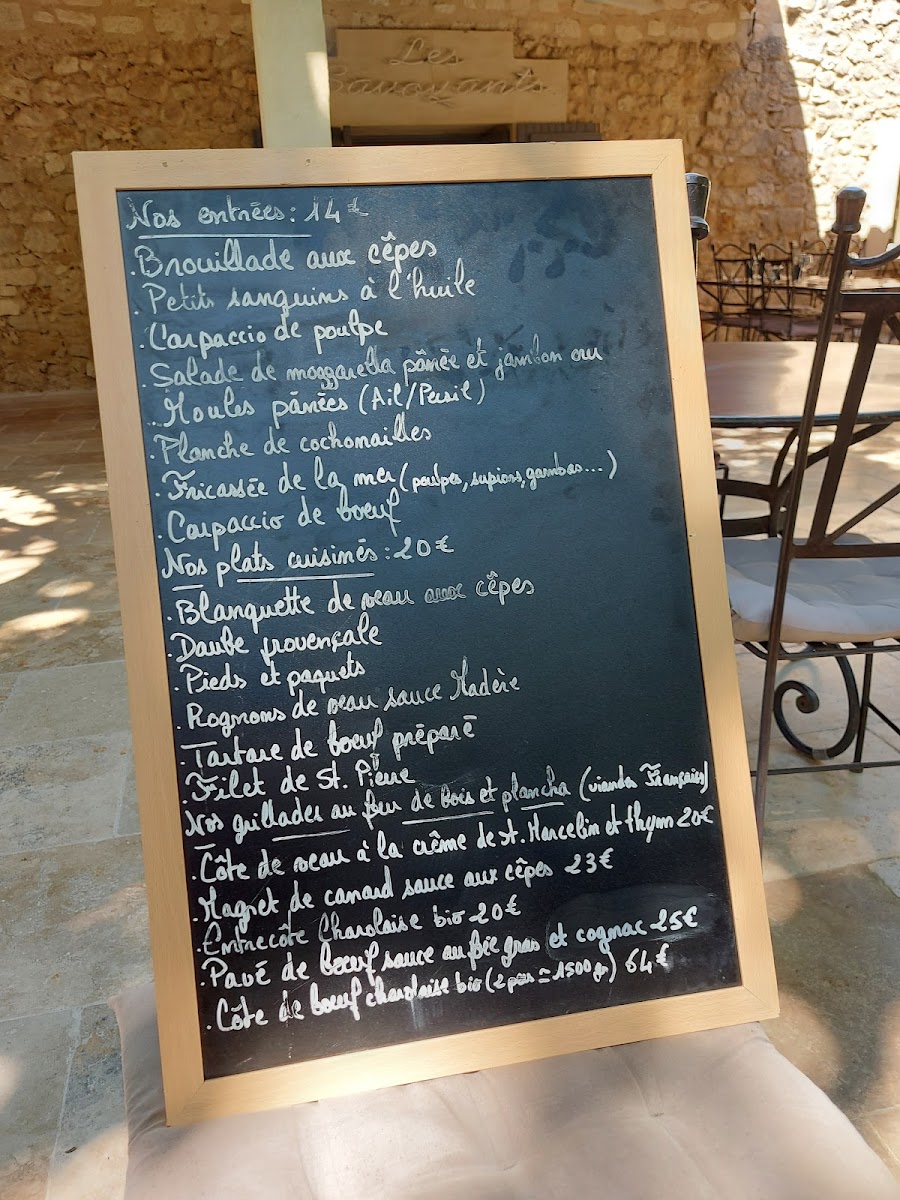 Les
Savoyants
Nos entrées: 14€
.Brouillade aux cêpes
.Petits sanguins à l'huile
.Carpaccio de poulpe
.Salade de mozzarella pânée et jambon cru
.Moules pânées (Ail/Persil)
.Planche de cochonailles
.Fricassée de la mer (poulpes, supions, gambas...)
.Carpaccio de boeuf
Nos plats cuisinés: 20€
.Blanquette de veau aux cêpes
.Daube provençale
.Pieds et paquets
.Rognons de veau sauce Madère
.Tartare de boeuf préparé
.Filet de St. Pierre
Nos grillades au feu de bois et plancha (viandes Françaises)
.Côte de veau à la crème de st. Marcelin et thym 20€
.Magret de canard sauce aux cêpes 23€
.Entrecôte Charolaise bio 20€
.Pavé de boeuf sauce au foie gras et cognac 25€
.Côte de boeuf charolaise bio (2 pers ≃ 1500 gr) 64€